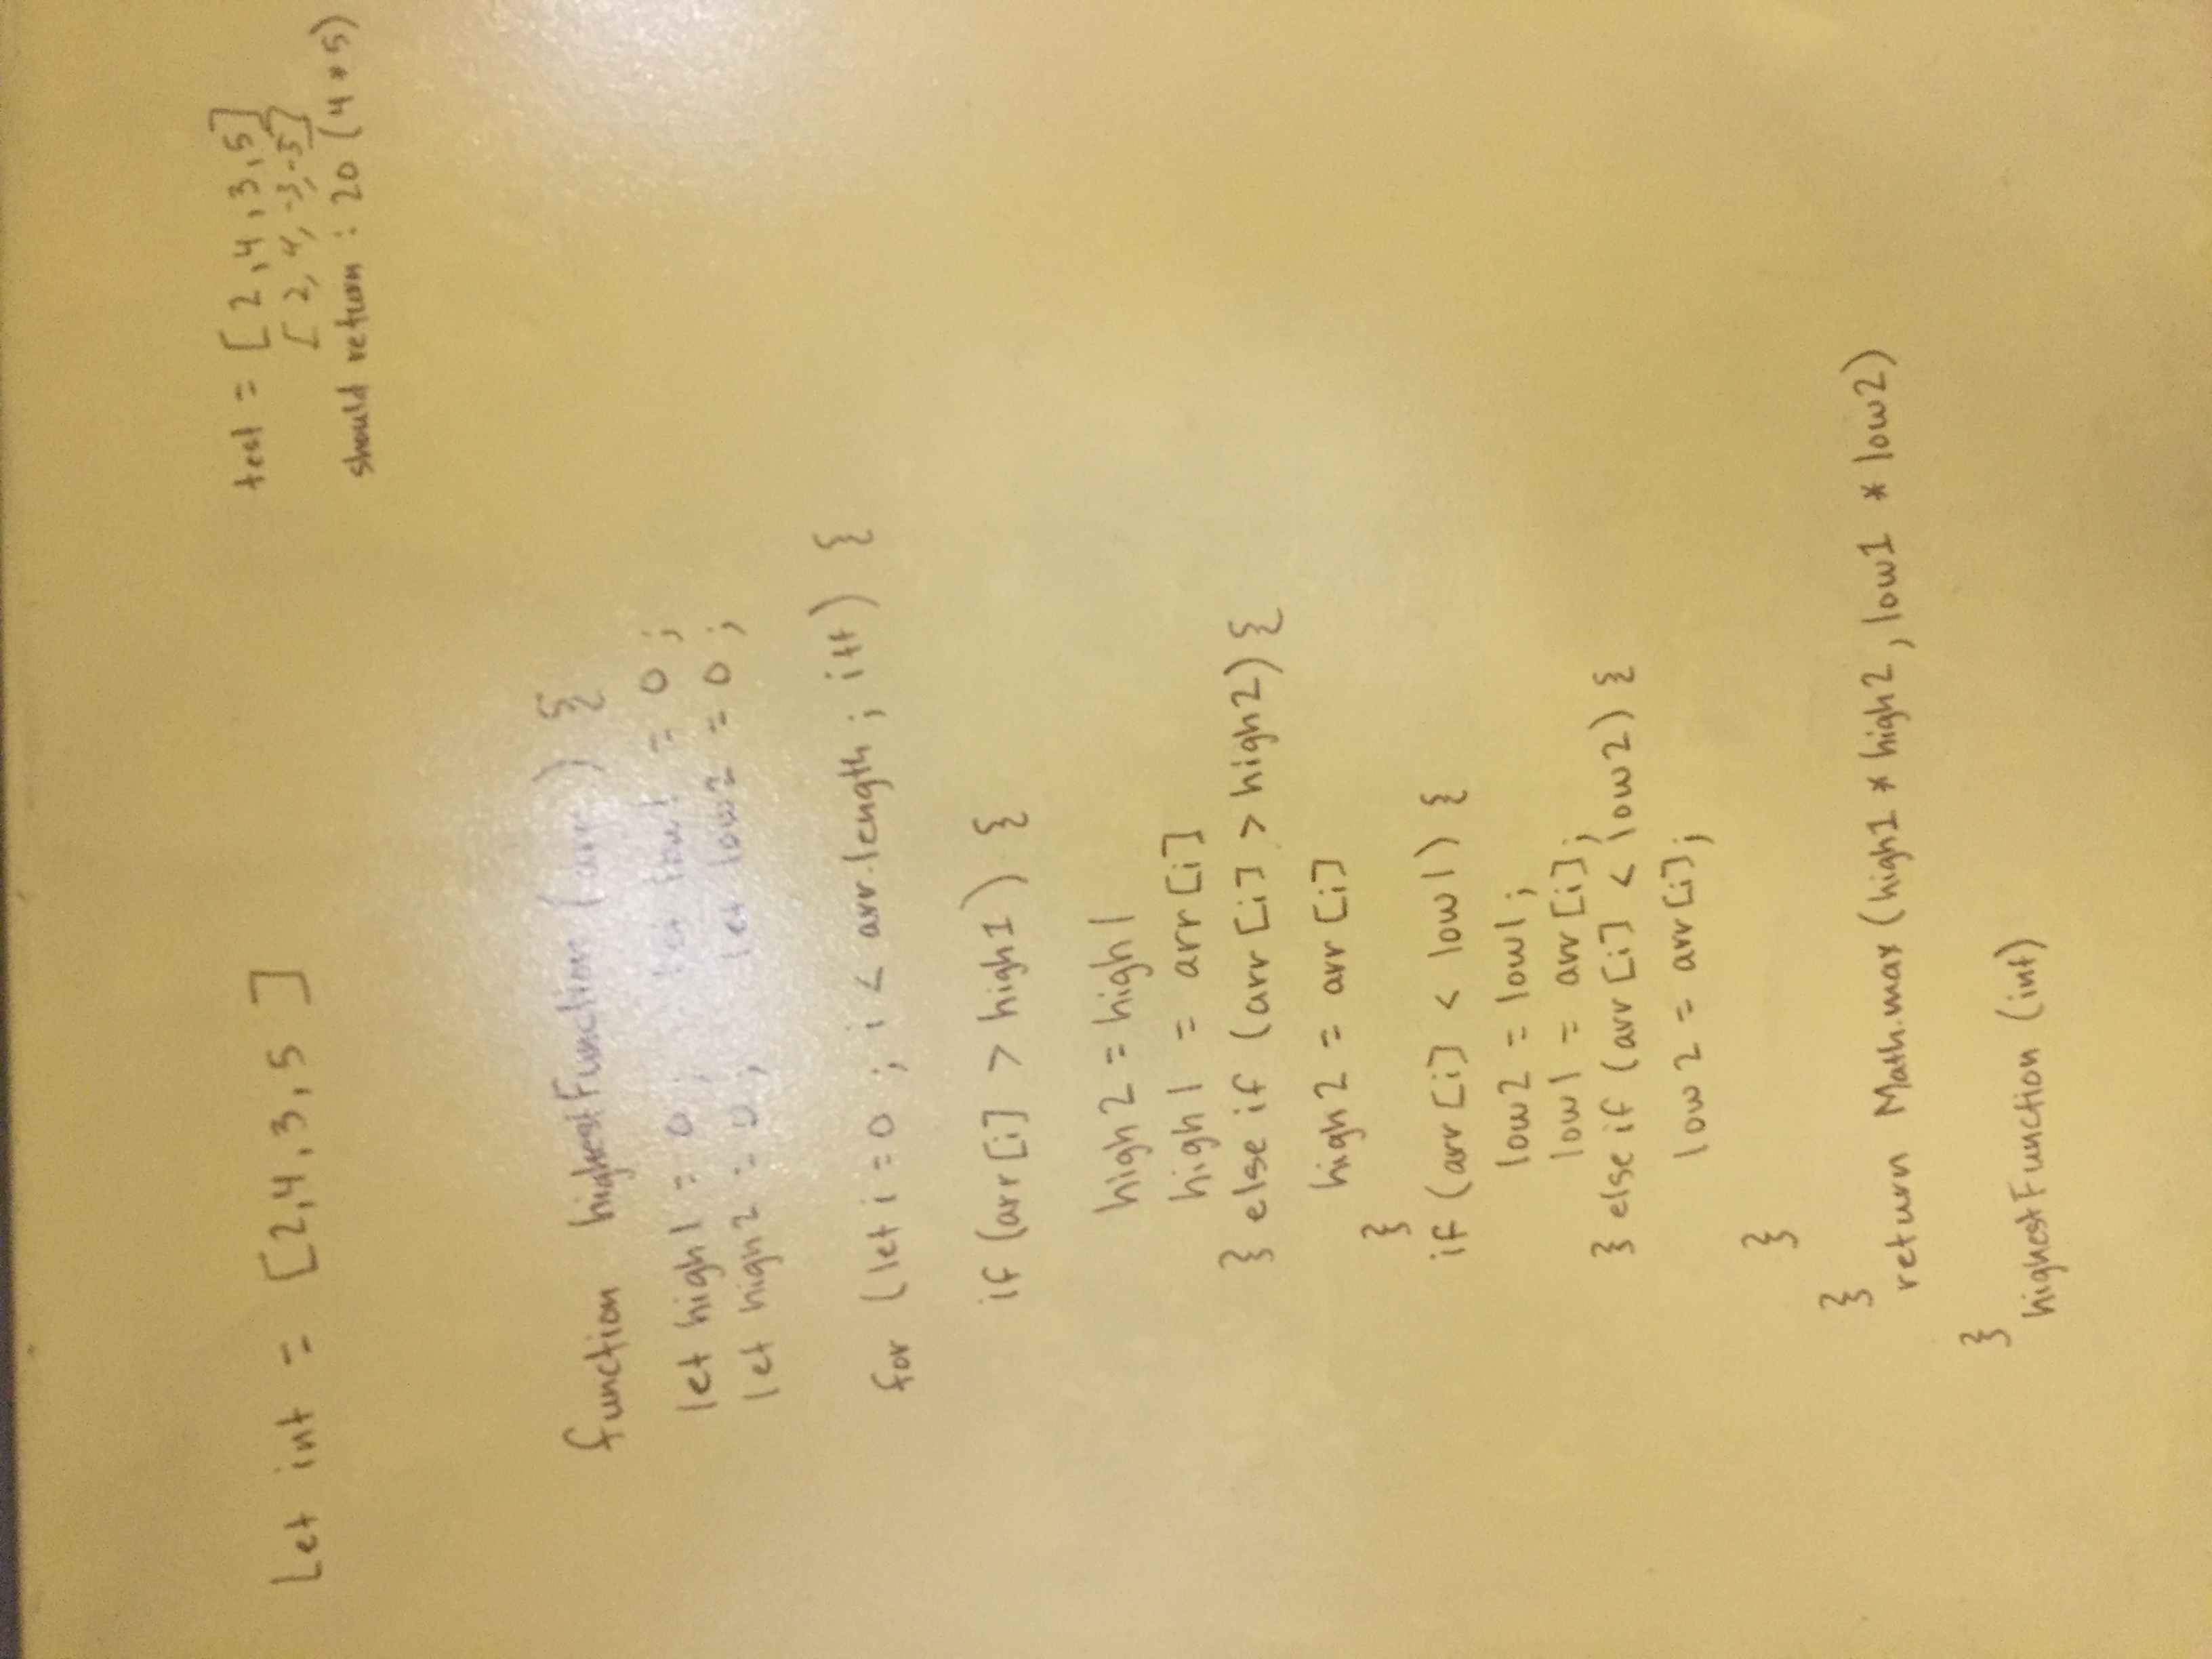 Let int = [2,4,3,5 ]
test = [2,4,3,5]
[2,4,-3,-5]
should return : 20 (4*5)
function highestFunction (arr) {
let high1 = 0; let low1 = 0;
let high2 = 0; let low2 = 0;
for (let i=0 ; i < arr.length ; i++) {
if (arr[i] > high1) {
high2 = high1
high1 = arr[i]
} else if (arr[i] > high2) {
high2 = arr[i]
}
if (arr[i] < low1) {
low2 = low1;
low1 = arr[i];
} else if (arr[i] < low2) {
low2 = arr[i];
}
}
return Math.max (high1 * high2, low1 * low2)
}
highestFunction (int)